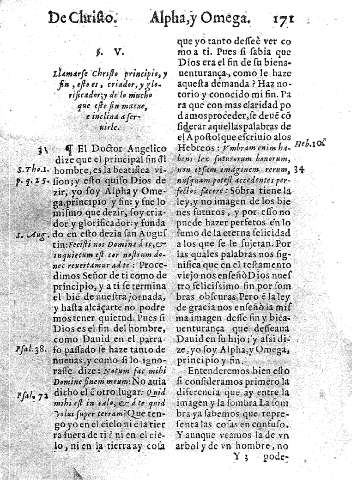 De Christo. Alpha, y Omega. 171
§. V.
Llamarse Christo principio, y
fin, esto es, criador, y glo-
rificador; y de lo mucho
que este fin mueue,
e inclina a ser-
uirle.
¶ El Doctor Angelico
S. Tho. 1.
dize que el principal fin dl
hombre, es la beatifica vi-
sion; y esto quiso Dios de
zir, yo soy Alpha y Ome-
ga. principio, y fin: y fue lo
mismo que dezir, soy cria-
dor, y glorificador: y funda
do en esto dezia san Augus
S. Aug.
tin: Fecisti nos Domine ad te, &
inquietum est cor nostrum do-
nec reuertamur ad te: Proce-
dimos Señor de ti como de
principio, y a ti se termina
el bie de nuestra jornada,
y hasta alcaçarte no pode
mos tener quietud. Pues si
Dios es el fin del hombre,
como Dauid en el parra-
fo passado le haze tanto de
nueuas, y como si lo igno-
Psal. 38.
rasse dize: Notum fac mihi
Domine finem meum: No auia
dicho el e otro lugar: Quid
Psal. 72
mihi est in cælo, & à te quid
volui super terram: Que ten-
go yo en el cielo ni e la tier
ra fuera de ti? ni en el cie-
lo, ni en la tierra ay cosa
que yo tanto dessee ver co
mo a ti. Pues si sabia que
Dios era el fin de su bien-
auenturança, como le haze
aquesta demanda? Haz no-
torio y conocido mi fin. Pa
ra que con mas claridad po
damos proceder, se deue có
siderar aquellas palabras de
el Apostol que escriuio a los
Hebreos: Vmbram enim ha-
Heb. 10.
bens lex futurorum bonorum,
non ipsam imaginem rerum,
34
nunquam potest accedentes per-
fectos facere: Sobra tiene la
ley, y no imagen de los bie
nes futuros, y por esso no
puede hazer perfetos en lo
sumo de la eterna felicidad
a los que se le sujetan. Por
las quales palabras nos sig-
nifica que en el testamento
viejo nos enseñò Dios nues
tro felicissimo fin por som
bras obscuras. Pero é la ley
de gracia nos enseñò la mis
ma imagen desse fin y bien-
auenturança que desseaua
Dauid en su hijo; y assi di-
ze, yo soy Alpha, y Omega,
principio y fin.
Entenderemos bien esto
si consideramos primero la
diferencia que ay entre la
imagen y la sombra La som
bra ya labemos que repre-
senta las cosas en confuso.
Y aunque veamos la de vn
arbol y de vn hombre, no
Y 3 pode-